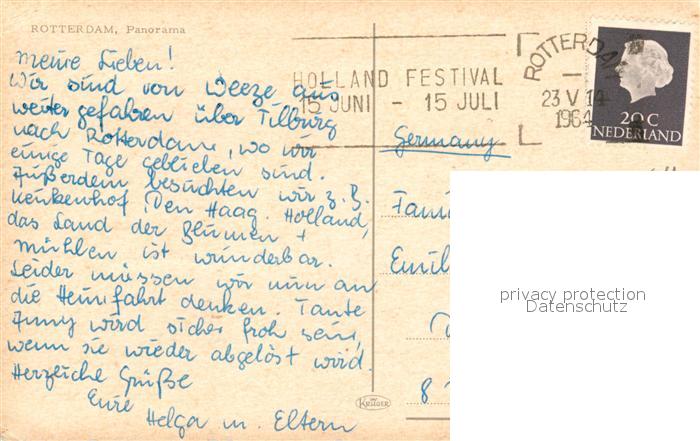 ROTTERDAM, Panorama
meine Lieben!
Wir sind von Weeze aus
weiter gefahren über Tilburg
nach Rotterdam, wo wir
einige Tage geblieben sind.
Außerdem besuchten wir z.B.
Keukenhof, Den Haag. Holland,
das Land der Blumen +
mühlen ist wunderbar.
Leider müssen wir nun an
die Heimfahrt denken. Tante
Anny wird sicher froh sein,
wenn sie wieder abgelöst wird.
Herzliche Grüße
Eure
Helga m. Eltern
HOLLAND FESTIVAL
15 JUNI - 15 JULI
ROTTERDAM
23 V 14
1964
20 C
NEDERLAND
Germany
Fami
Emil
8
KRÜGER
privacy protection
Datenschutz